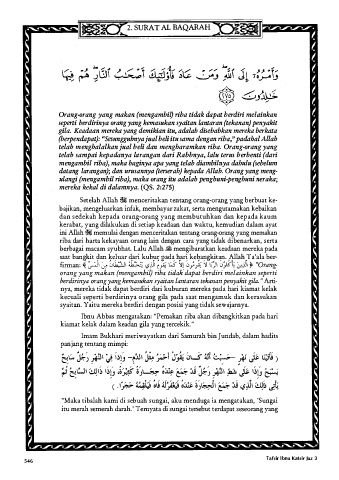 2. SURAT AL BAQARAH
وَأَمْرُهُ إِلَى اللَّهِ وَمَنْ عَادَ فَأُوْلَئِكَ أَصْحَابُ النَّارِ هُمْ فِيهَا
خَالِدُونَ ٢٧٥
Orang-orang yang makan (mengambil) riba tidak dapat berdiri melainkan
seperti berdirinya orang yang kemasukan syaitan lantaran (tekanan) penyakit
gila. Keadaan mereka yang demikian itu, adalah disebabkan mereka berkata
(berpendapat): "Sesungguhnya jual beli itu sama dengan riba," padahal Allah
telah menghalalkan jual beli dan mengharamkan riba. Orang-orang yang
telah sampai kepadanya larangan dari Rabbnya, lalu terus berhenti (dari
mengambil riba), maka baginya apa yang telah diambilnya dahulu (sebelum
datang larangan); dan urusannya (terserah) kepada Allah. Orang yang meng-
ulangi (mengambil riba), maka orang itu adalah penghuni-penghuni neraka;
mereka kekal di dalamnya. (QS. 2:275)
Setelah Allah ﷻ menceritakan tentang orang-orang yang berbuat ke-
bajikan, mengeluarkan infak, membayar zakat, serta mengutamakan kebaikan
dan sedekah kepada orang-orang yang membutuhkan dan kepada kaum
kerabat, yang dilakukan di setiap keadaan dan waktu, kemudian dalam ayat
ini Allah ﷻ memulai dengan menceritakan tentang orang-orang yang memakan
riba dari harta kekayaan orang lain dengan cara yang tidak dibenarkan, serta
berbagai macam syubhat. Lalu Allah ﷻ mengibaratkan keadaan mereka pada
saat bangkit dan keluar dari kubur pada hari kebangkitan. Allah Ta'ala ber-
firman: ﴿ الَّذِينَ يَأْكُلُونَ الرِّبَا لاَ يَقُومُونَ إِلاَّ كَمَا يَقُومُ الَّذِي يَتَخَبَّطُهُ الشَّيْطَانُ مِنَ الْمَسِّ ﴾ "Orang-
orang yang makan (mengambil) riba tidak dapat berdiri melainkan seperti
berdirinya orang yang kemasukan syaitan lantaran tekanan penyakit gila." Arti-
nya, mereka tidak dapat berdiri dari kuburan mereka pada hari kiamat kelak
kecuali seperti berdirinya orang gila pada saat mengamuk dan kerasukan
syaitan. Yaitu mereka berdiri dengan posisi yang tidak sewajarnya.
Ibnu Abbas mengatakan: "Pemakan riba akan dibangkitkan pada hari
kiamat kelak dalam keadan gila yang tercekik."
Imam Bukhari meriwayatkan dari Samurah bin Jundab, dalam hadits
panjang tentang mimpi:
( فَأَتَيْنَا عَلَى نَهْرٍ -حَسِبْتُ أَنَّهُ كَانَ يَقُوْلُ أَحْمَرُ مِثْلَ الدَّمِ- وَإِذَا فِي النَّهْرِ رَجُلٌ سَابِحٌ
يَسْبَحُ وَإِذَا عَلَى شَطِّ النَّهْرِ رَجُلٌ قَدْ جَمَعَ عِنْدَهُ حِجَارَةً كَثِيْرَةً، وَإِذَا ذَلِكَ السَّابِحُ ثُمَّ
يَأْتِي ذَلِكَ الَّذِي قَدْ جَمَعَ الْحِجَارَةَ عِنْدَهُ فَيَفْغَرُ لَهُ فَاهُ فَيُلْقِمُهُ حَجَرًا. )
"Maka tibalah kami di sebuah sungai, aku menduga ia mengatakan, 'Sungai
itu merah semerah darah.' Ternyata di sungai tersebut terdapat seseorang yang
546
Tafsir Ibnu Katsir Juz 3